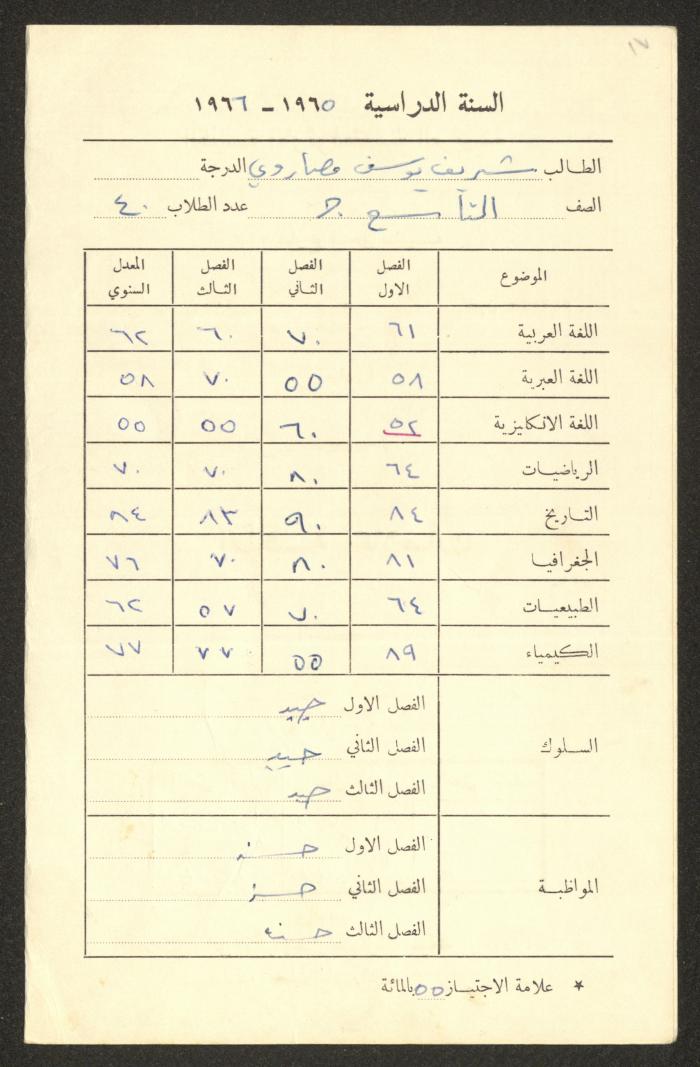 ١٧
السنة الدراسية ١٩٦٥ - ١٩٦٦
الطالب شريف يوسف مصاروي الدرجة
الصف التاسع ج عدد الطلاب ٤٠
الموضوع الفصل الاول الفصل الثاني الفصل الثالث المعدل السنوي
اللغة العربية ٦١ ٧٠ ٦٠ ٦٢
اللغة العبرية ٥٨ ٥٥ ٧٠ ٥٨
اللغة الانكليزية ٥٢ ٦٠ ٥٥ ٥٥
الرياضيات ٦٤ ٨٠ ٧٠ ٧٠
التاريخ ٨٤ ٩٠ ٨٣ ٨٤
الجغرافيا ٨١ ٨٠ ٧٠ ٧٦
الطبيعيات ٦٤ ٧٠ ٥٧ ٦٢
الكيمياء ٨٩ ٥٥ ٧٧ ٧٧
السلوك
الفصل الاول جيد
الفصل الثاني جيد
الفصل الثالث جيد
المواظبة
الفصل الاول حسنه
الفصل الثاني حسنه
الفصل الثالث حسنه
* علامة الاجتياز ٥٥ بالمائة